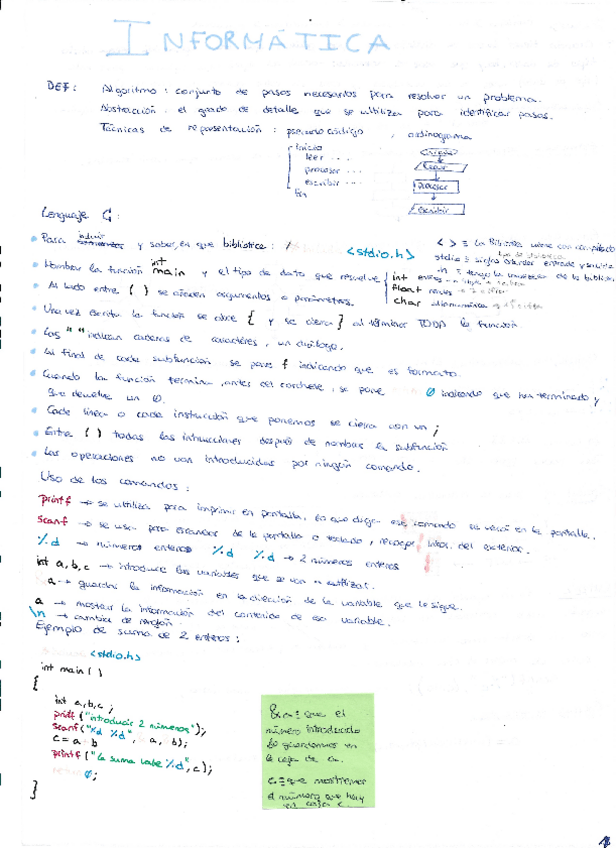 INFORMÁTICA
DEF: Algoritmo: conjunto de pasos necesarios para resolver un problema.
Abstracción: el grado de detalle que se utiliza para identificar pasos.
Técnicas de representación: pseudocódigo, ordinograma
inicio
leer ...
procesar ...
escribir ...
fin
Leer
Procesar
Escribir
Lenguaje C:
Para incluir y saber, en que biblioteca: <stdio.h>
Nombrar la función int main y el tipo de dato que resuelve
int
float
char
Al lado entre ( ) se añaden argumentos o parámetros.
Una vez escrita la función se abre { y se cierra } al término TODA la función.
Las " " incluyen cadenas de caracteres, un diálogo.
Al final de cada subfunción se pone f indicando que es formato.
Cuando la función termina, antes del corchete, se pone 0 indicando que ha terminado y
que devuelve un 0.
Cada línea o cada instrucción que ponemos se cierra con un ;
Entre ( ) todas las instrucciones después de nombrar la subfunción
Las operaciones no van introducidas por ningún comando.
Uso de los comandos:
printf → se utiliza para imprimir en pantalla,
scanf → se usa para escanear de la pantalla o teclado, recoger info. del exterior.
%d → números enteros %d %d → 2 números enteros
int a, b, c → introduce las variables que se van a utilizar.
a → guardar la información en la dirección de la variable que lo sigue.
a → mostrar la información del contenido de esa variable.
\n → cambia de renglón
Ejemplo de suma de 2 enteros:
<stdio.h>
int main ( )
{
int a,b,c ;
printf ("introducir 2 números");
scanf ("%d %d", a, b);
c = a b
printf ("la suma vale %d", c);
0;
}
&a ≡ que el
número introducido
lo guardamos en
la caja de a.
c ≡ que mostremos
el número que hay
en caja c
1